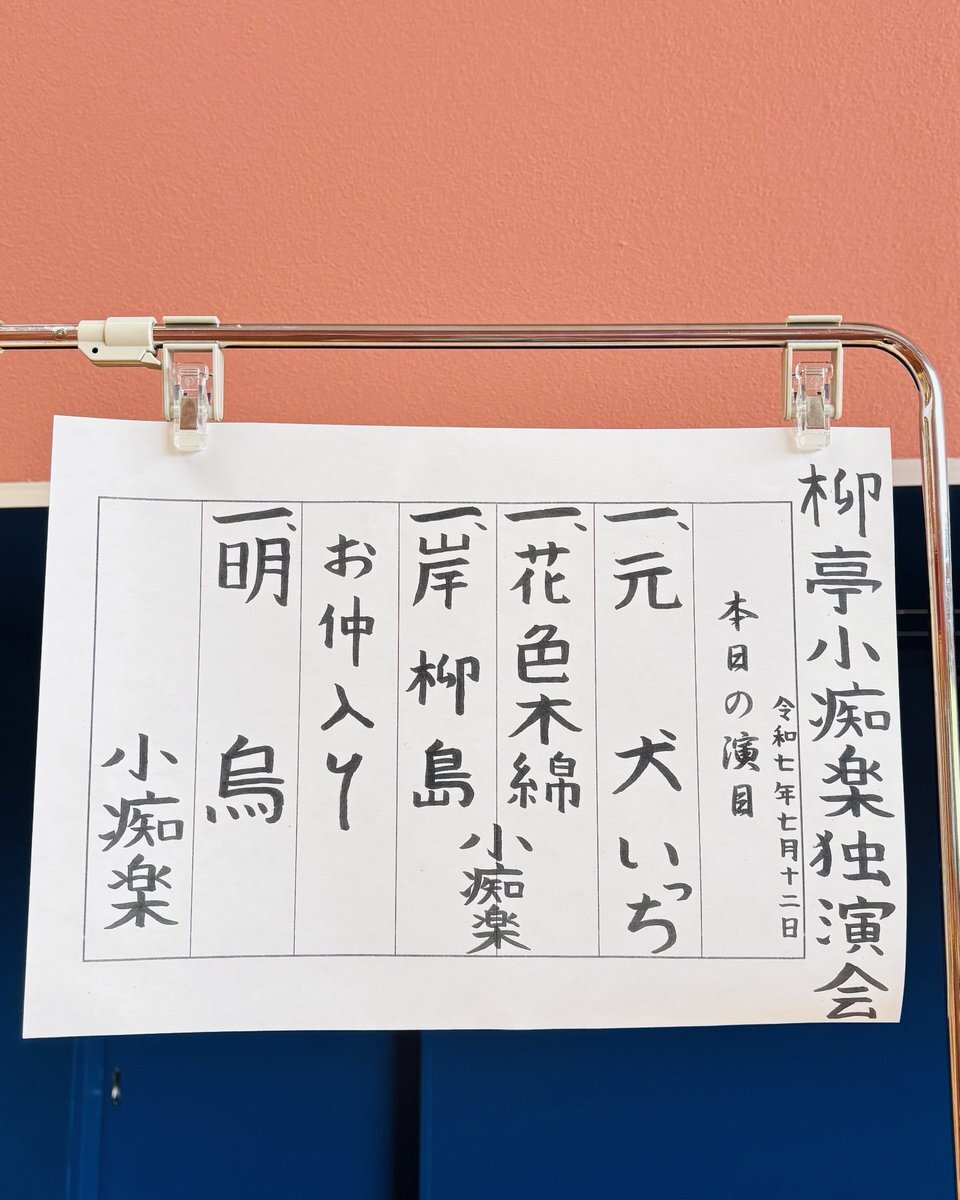 柳亭小痴楽独演会
令和七年七月十二日
本日の演目
一、元 犬 いっち
一、花色木綿
一、岸柳島
小痴楽
お仲入り
一、明 烏
小痴楽